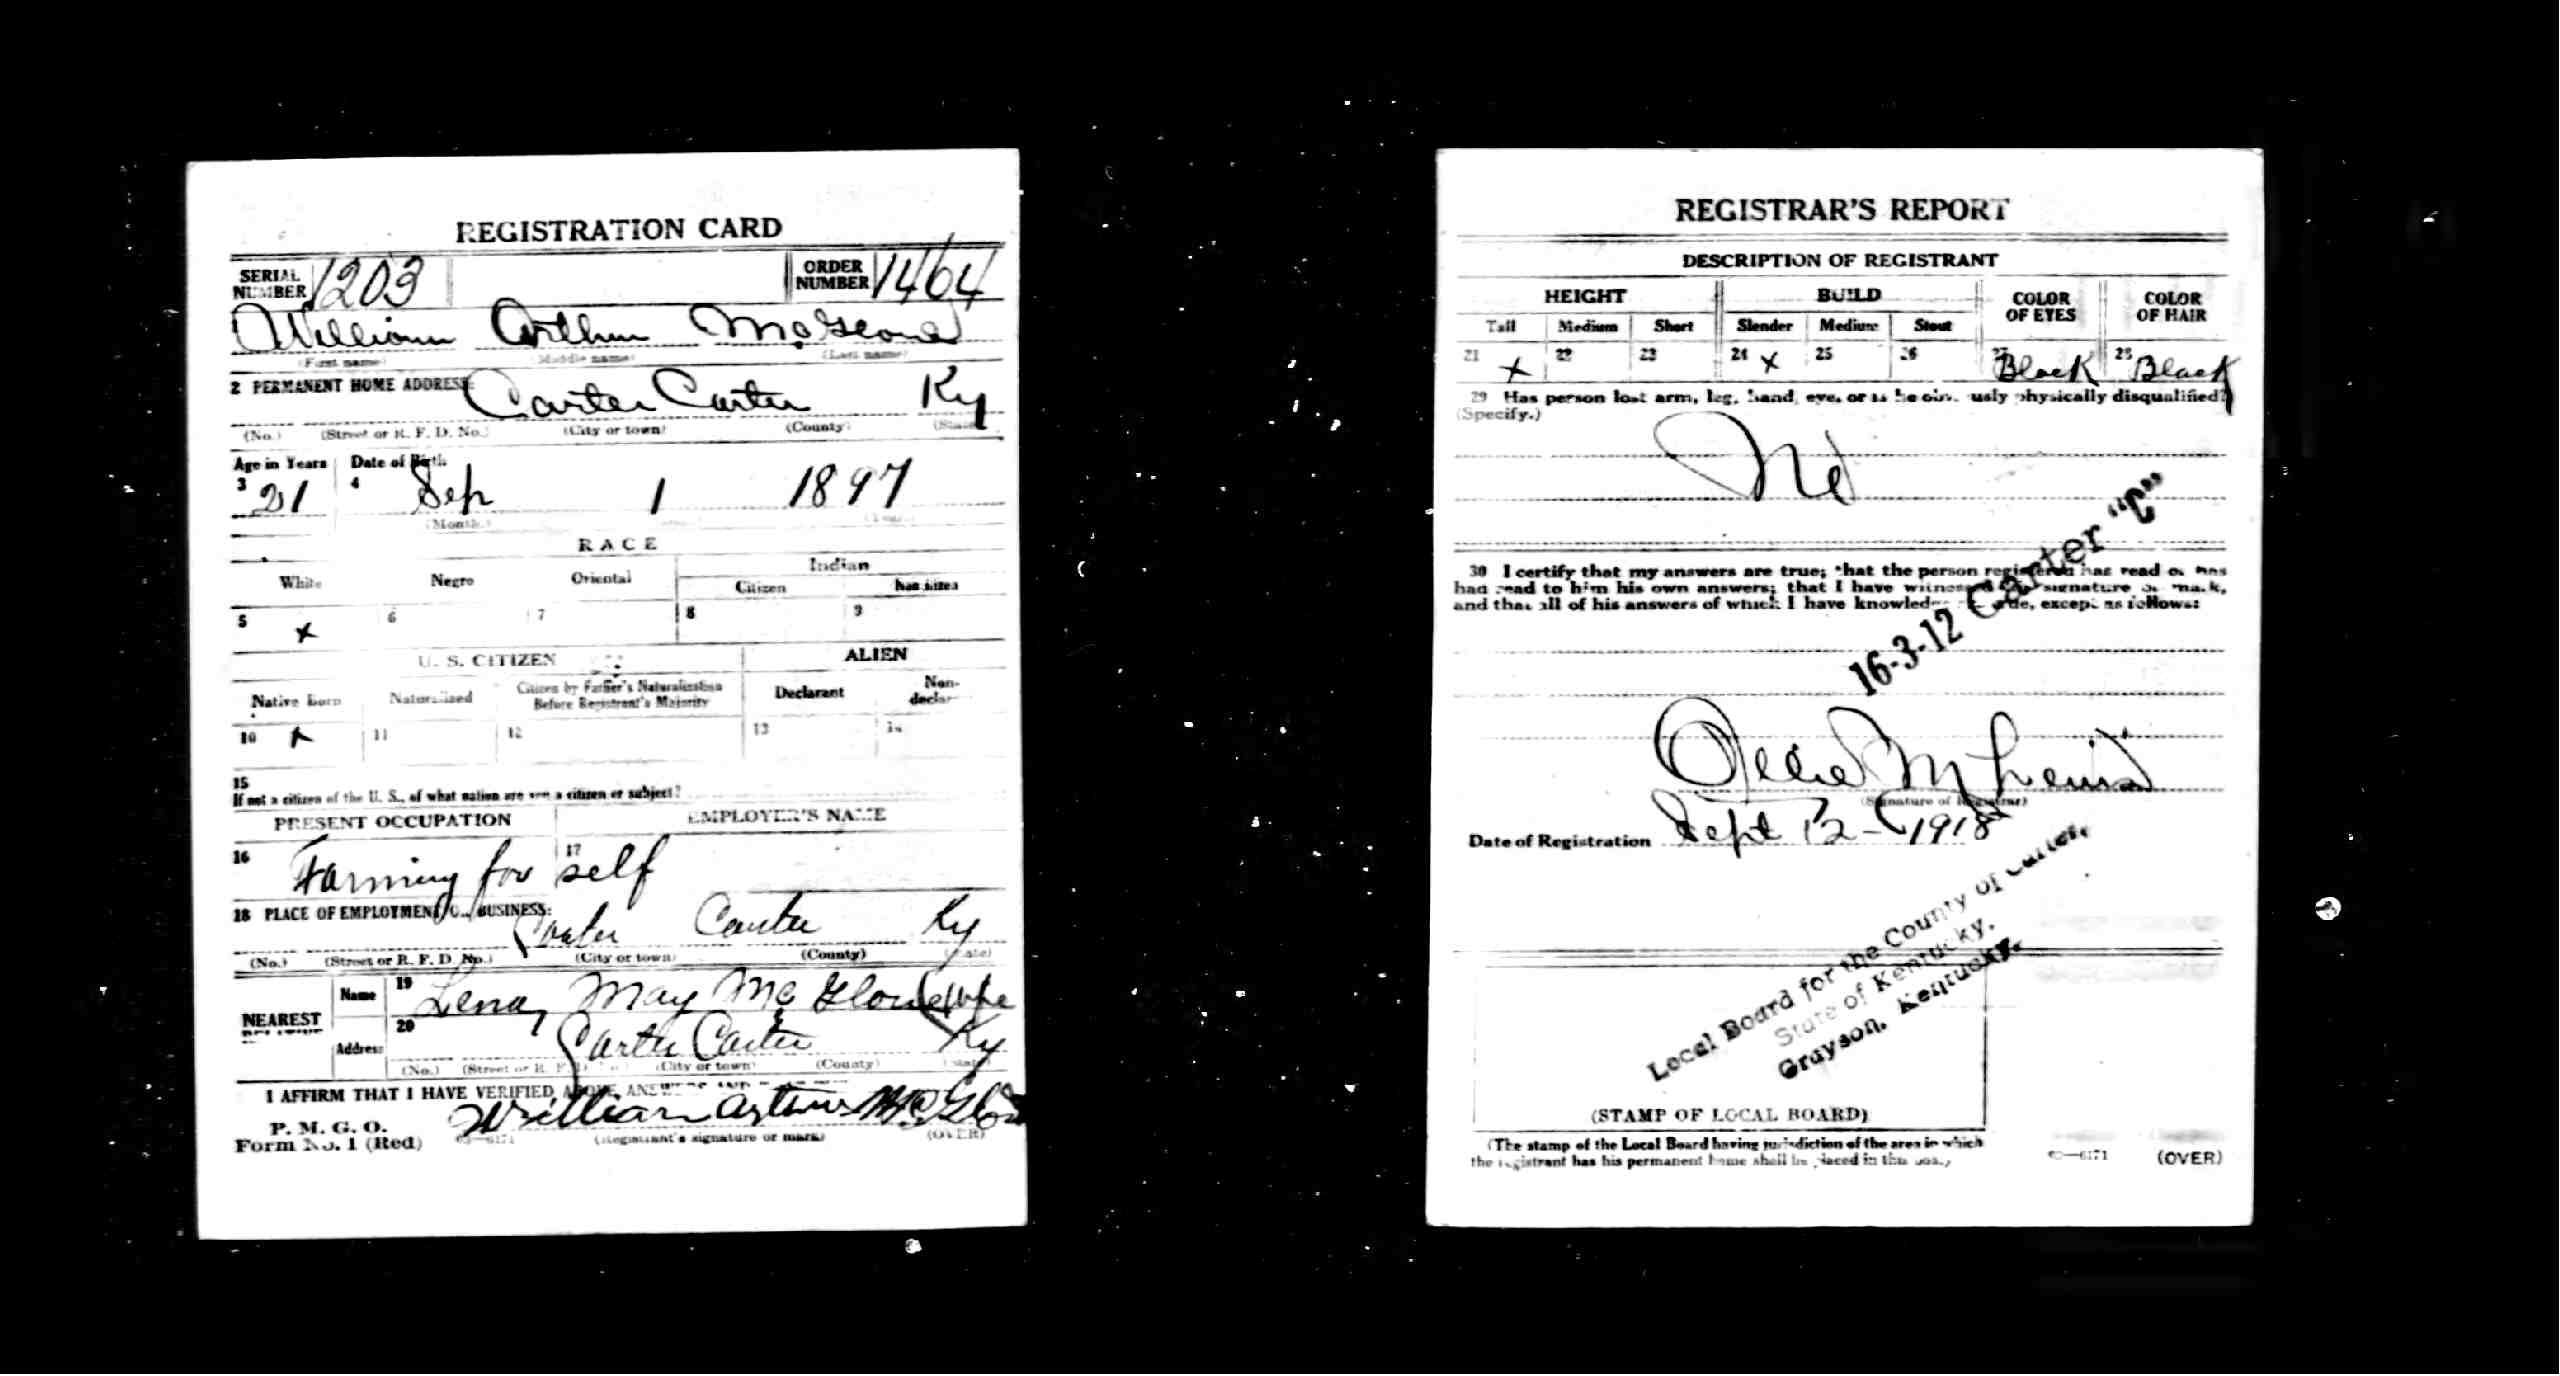 REGISTRATION CARD
SERIAL NUMBER 1203 ORDER NUMBER 1464
William Arthur McGlone
(First name) (Middle name) (Last name)
2 PERMANENT HOME ADDRESS:
Carter Carter Ky
(No.) (Street or R. F. D. No.) (City or town) (County) (State)
Age in Years Date of Birth
3 21 4 Sep 1 1897
(Month.)
RACE
White Negro Oriental Indian
Citizen Noncitizen
5 x 6 7 8 9
U. S. CITIZEN ALIEN
Native Born Naturalized Citizen by Father's Naturalization Before Registrant's Majority Declarant Non-declarant
10 x 11 12 13 14
15
If not a citizen of the U. S., of what nation are you a citizen or subject?
PRESENT OCCUPATION EMPLOYER'S NAME
16 Farming for 17 self
18 PLACE OF EMPLOYMENT OR BUSINESS:
Carter Carter Ky
(No.) (Street or R. F. D. No.) (City or town) (County) (State)
NEAREST RELATIVE
Name 19 Lena May McGlone
Address 20 Carter Carter Ky
(No.) (Street or R. F. D. No.) (City or town) (County) (State)
I AFFIRM THAT I HAVE VERIFIED ABOVE ANSWERS AND
P. M. G. O.
Form No. 1 (Red) William Arthur McGlone
(Registrant's signature or mark) (OVER)
REGISTRAR'S REPORT
DESCRIPTION OF REGISTRANT
HEIGHT BUILD COLOR OF EYES COLOR OF HAIR
Tall Medium Short Slender Medium Stout
21 x 22 23 24 x 25 26 27 Black 28 Black
29 Has person lost arm, leg, hand, eye, or is he obviously physically disqualified?
(Specify.)
No
30 I certify that my answers are true; that the person registered has read or has
had read to him his own answers; that I have witnessed his signature or mark,
and that all of his answers of which I have knowledge are true, except as follows:
16-3-12 Carter "C"
Ollie M Lewis
(Signature of Registrar)
Date of Registration Sept 12 - 1918
Local Board for the County of Carter,
State of Kentucky,
Grayson, Kentucky.
(STAMP OF LOCAL BOARD)
(The stamp of the Local Board having jurisdiction of the area in which
the registrant has his permanent home shall be placed in this box.)
63—6171 (OVER)